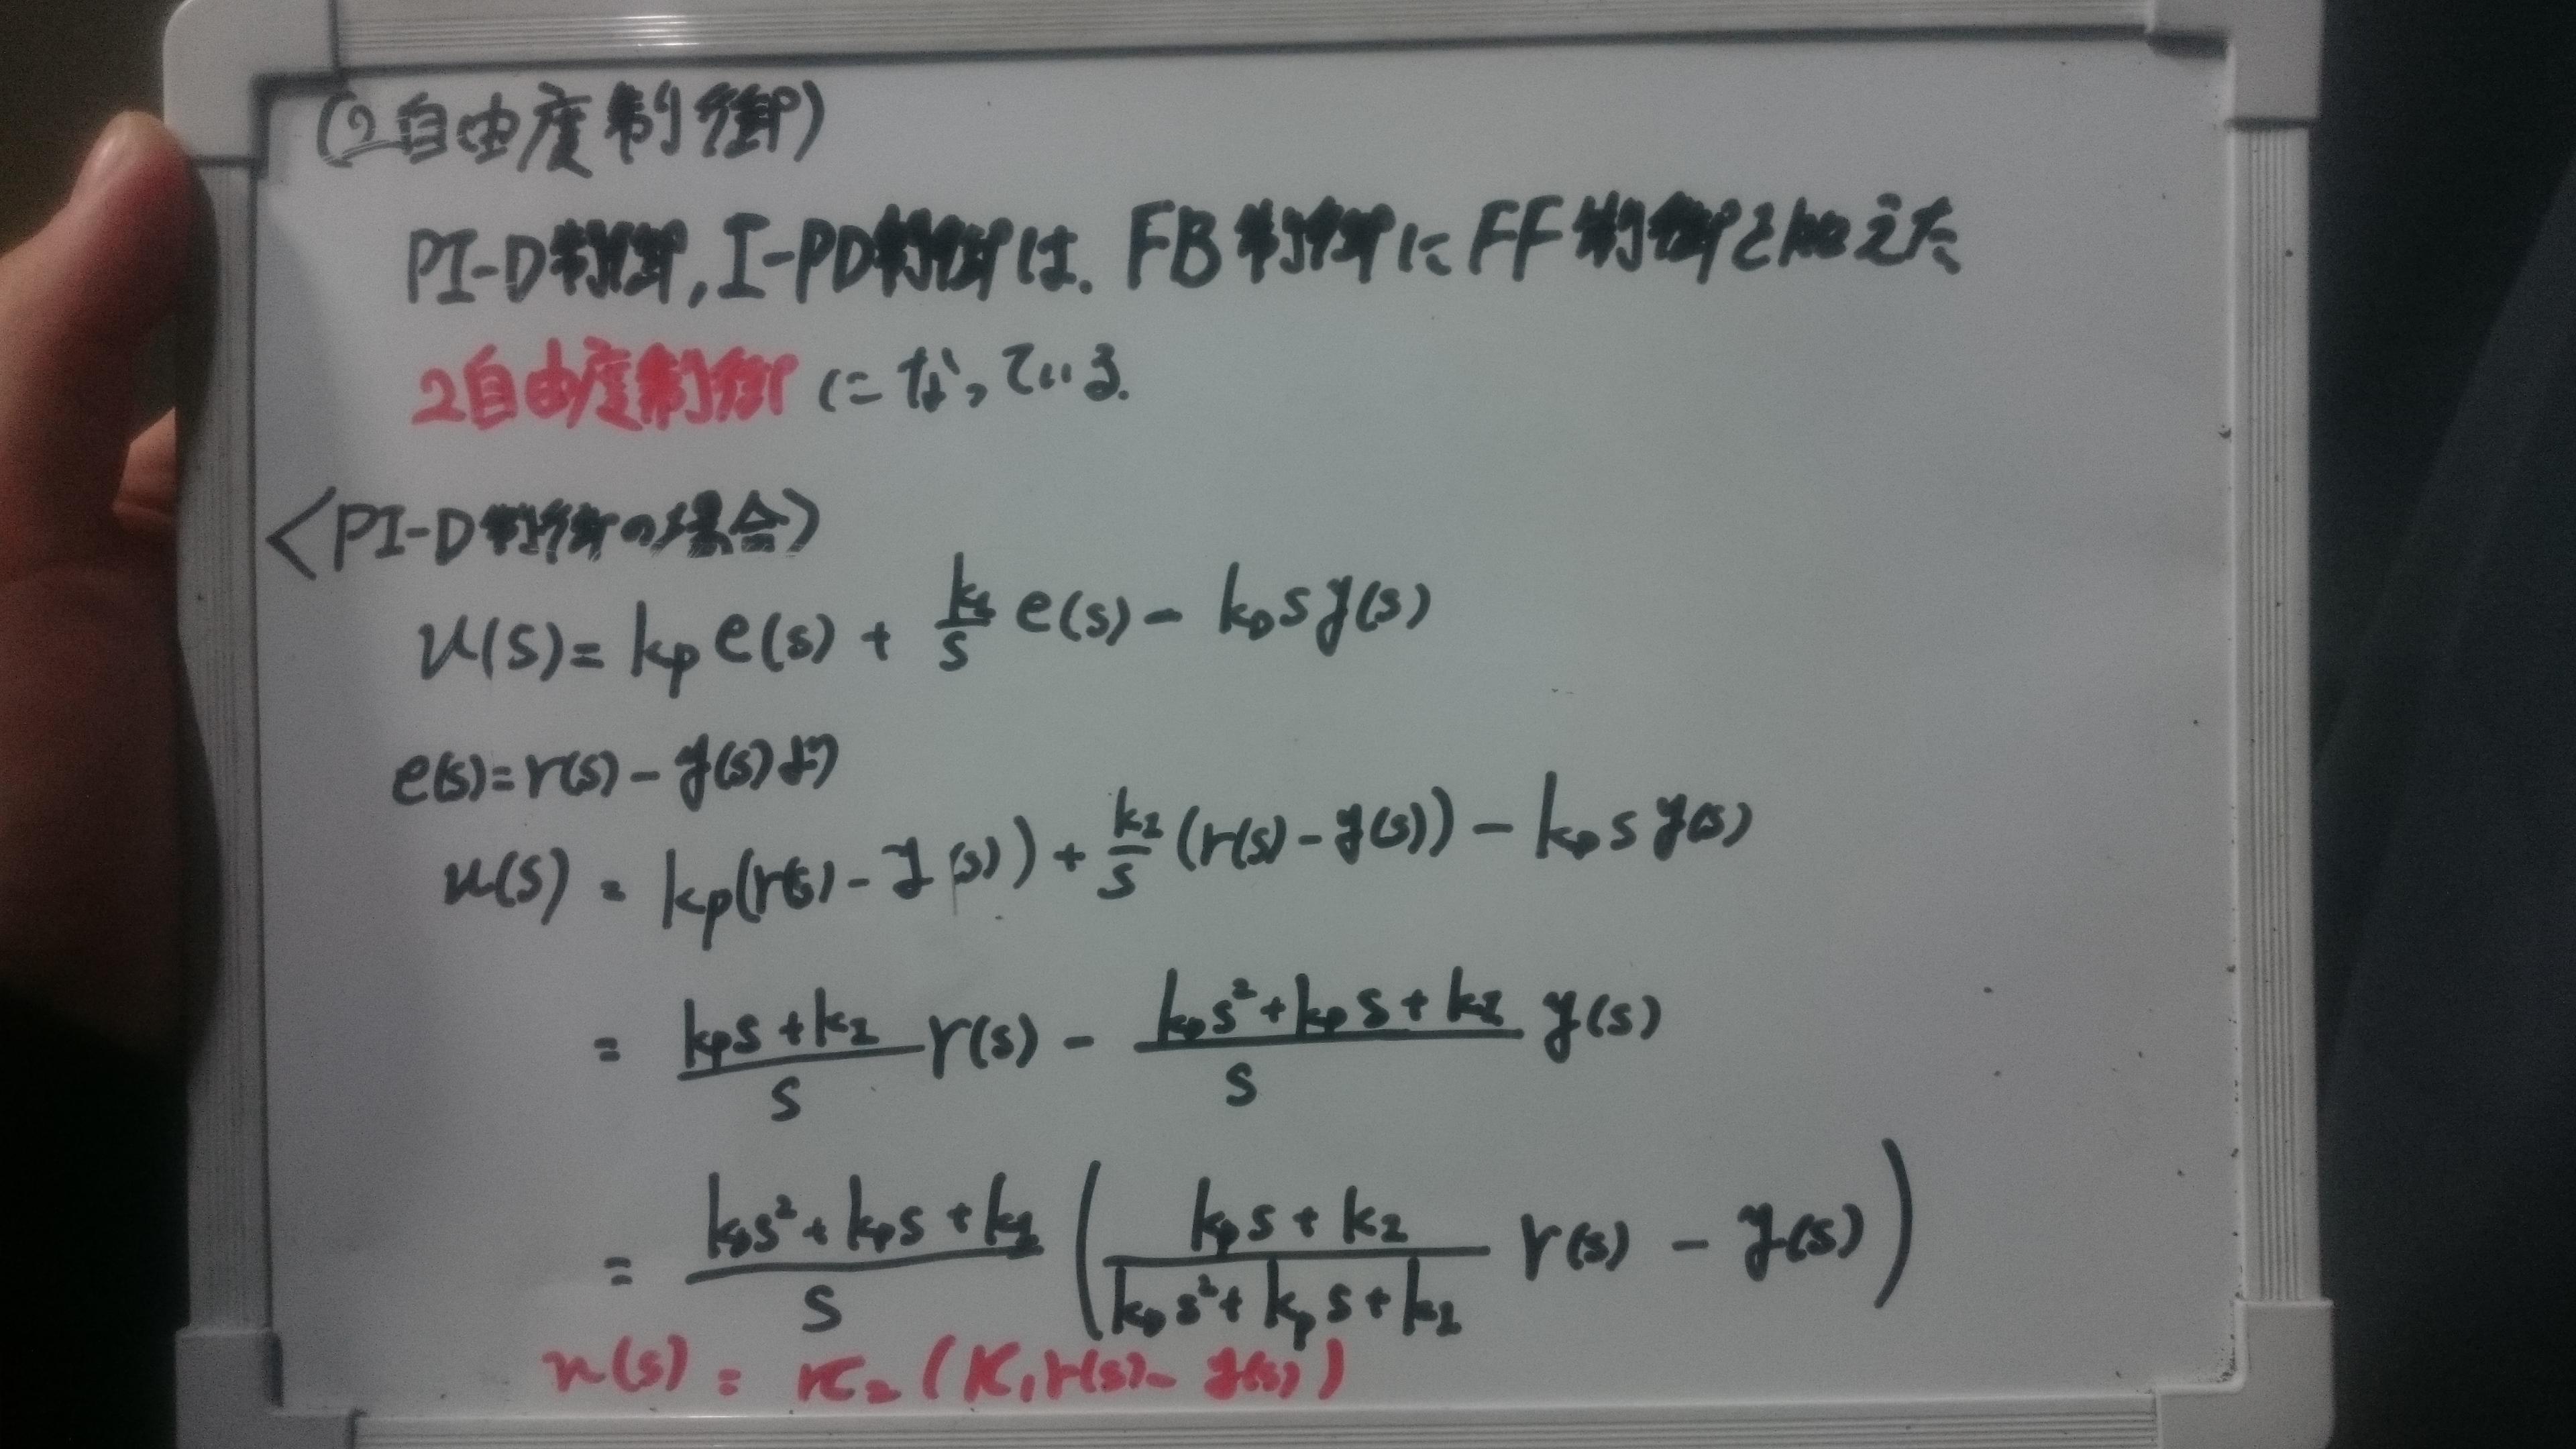 (2自由度制御)
PI-D制御,I-PD制御は. FB制御にFF制御を加えた
2自由度制御になっている.
<PI-D制御の場合>
u(s)= kp e(s) + kI/s e(s) - kD s y(s)
e(s)=r(s)-y(s)より
u(s) = kp(r(s)-y(s)) + kI/s (r(s)-y(s)) - kD s y(s)
= (kps+kI)/s r(s) - (kDs²+kps+kI)/s y(s)
= (kDs²+kps+kI)/s ( (kps+kI)/(kDs²+kps+kI) r(s) - y(s) )
u(s) = K2(K1r(s)-y(s))